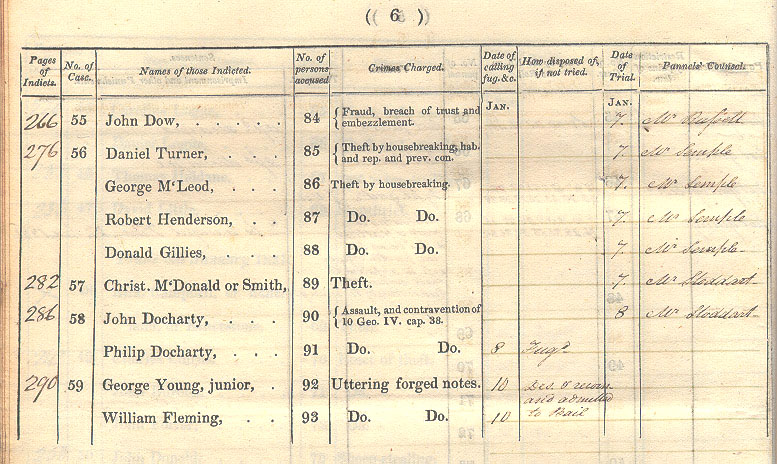 (( 6 ))
Pages of Indicts. No. of Case. Names of those Indicted. No. of persons accused Crimes Charged. Date of calling fug. &c. How disposed of, if not tried. Date of Trial. Pannels' Counsel.
JAN. JAN.
266 55 John Dow, . . . . . 84 { Fraud, breach of trust and embezzlement. 7. Mr Russell
276 56 Daniel Turner, . . . 85 { Theft by housebreaking, hab. and rep. and prev. con. 7. Mr Semple
George M'Leod, . . . 86 Theft by housebreaking. 7. Mr Semple
Robert Henderson, . . 87 Do. Do. 7. Mr Semple
Donald Gillies, . . . 88 Do. Do. 7. Mr Semple
282 57 Christ. M'Donald or Smith, 89 Theft. 7. Mr Stoddart
286 58 John Docharty, . . . 90 { Assault, and contravention of 10 Geo. IV. cap. 38. 8 Mr Stoddart
Philip Docharty, . . . 91 Do. Do. 8 Fuge
290 59 George Young, junior, . 92 Uttering forged notes. 10 Des. &
and admitted
William Fleming, . . 93 Do. Do. 10 to Bail